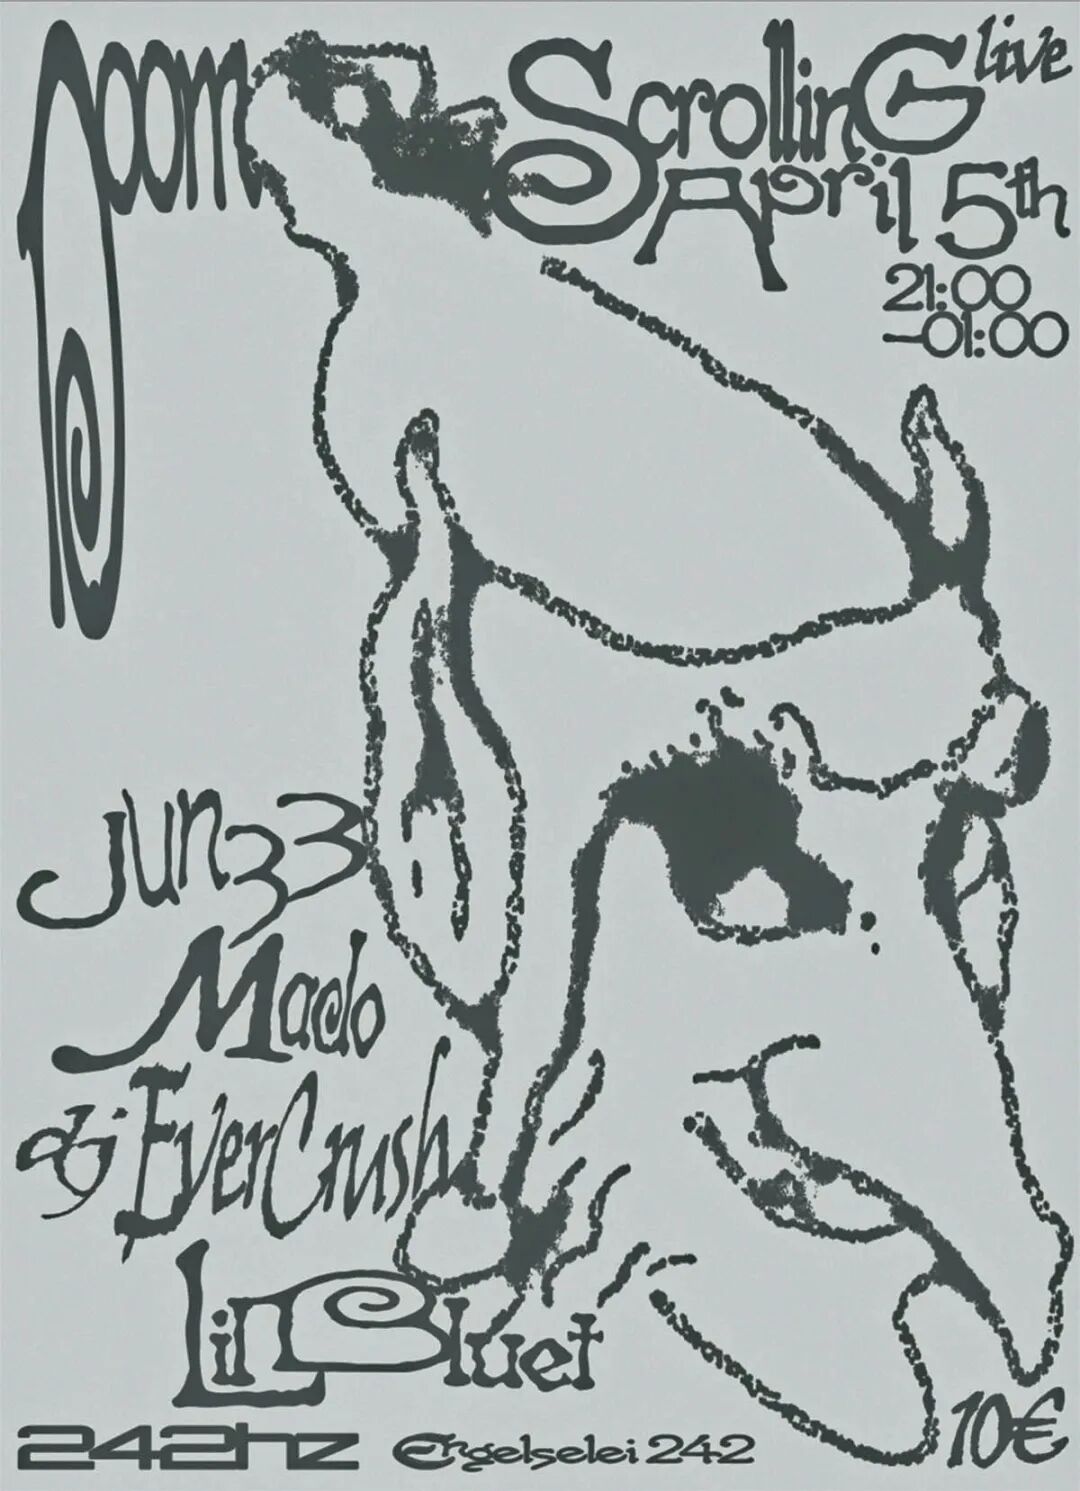 poom
ScrollinG live
April 5th
21:00
-01:00
Jun33
Mado
dj EverCrush
Lin Bluet
242hz Engelselei 242 10€